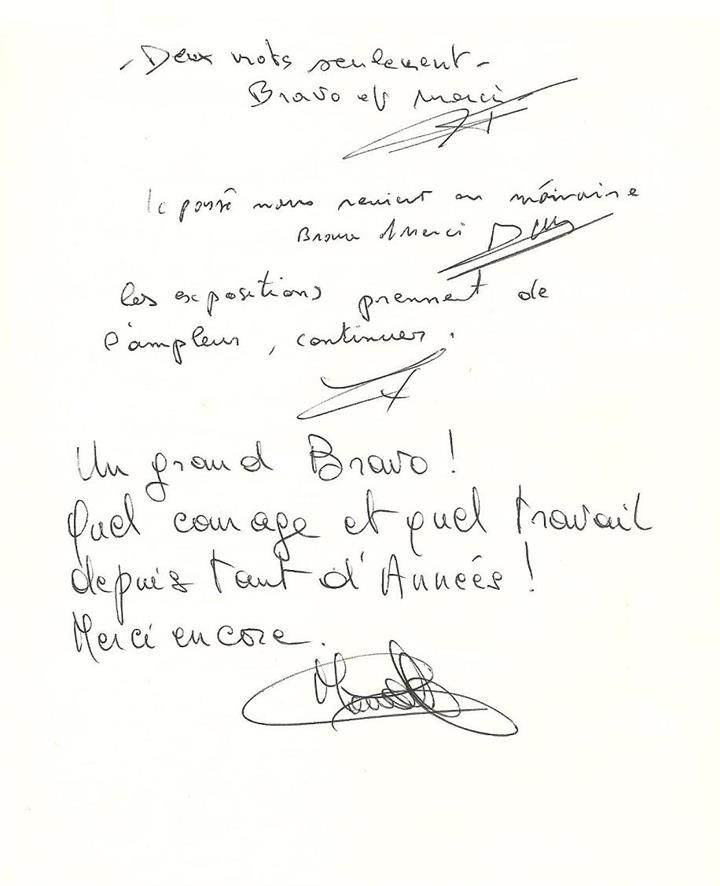 - Deux mots seulement -
Bravo et merci
le passé nous revient en mémoire
Bravo & merci
les expositions prennent de
l'ampleur, continuer.
Un grand Bravo !
Quel courage et quel travail
depuis tant d'Années !
Merci encore.